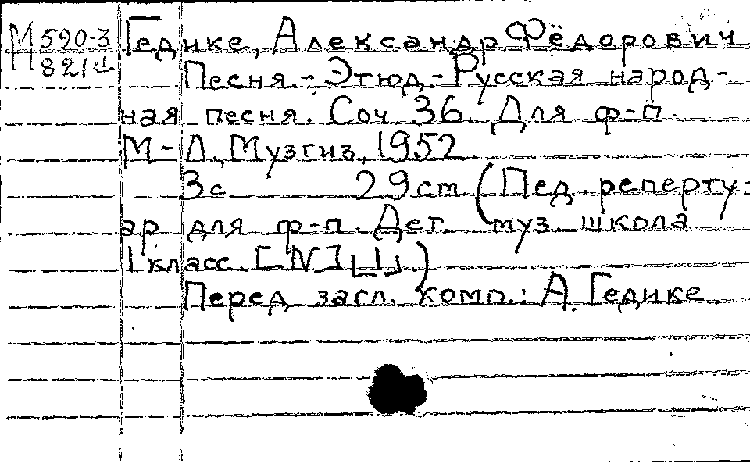 М 590-3 Гедике, Александр Фёдорович
821 Песня. - Этюд. - Русская народ-
ная песня. Соч 36. Для ф-п.
М-Л, Музгиз, 1952
3с 29cm (Пед. реперту-
ар для ф-п. Дет. муз. школа
1 класс.
Перед загл. комп.: А. Гедике.